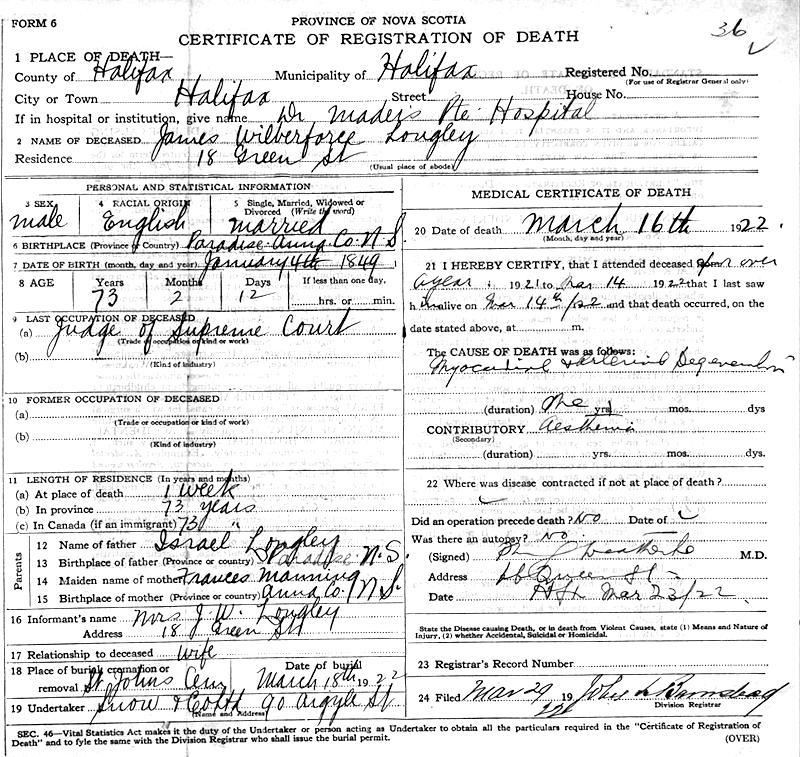 FORM 6
PROVINCE OF NOVA SCOTIA
36
CERTIFICATE OF REGISTRATION OF DEATH
1 PLACE OF DEATH—
County of Halifax Municipality of Halifax Registered No.
(For use of Registrar General only)
City or Town Halifax Street House No.
If in hospital or institution, give name Dr Mader's Pte Hospital
2 NAME OF DECEASED James Wilberforce Longley
Residence 18 Green St
(Usual place of abode)
PERSONAL AND STATISTICAL INFORMATION
3 SEX 4 RACIAL ORIGIN 5 Single, Married, Widowed or Divorced (Write the word)
male English married
6 BIRTHPLACE (Province or Country) Paradise Anna. Co. N S.
7 DATE OF BIRTH (month, day and year) January 4th 1849
8 AGE Years Months Days If less than one day,
73 2 12 hrs. or min.
9 LAST OCCUPATION OF DECEASED
(a) Judge of Supreme Court
(Trade or occupation or kind or work)
(b)
(Kind of industry)
10 FORMER OCCUPATION OF DECEASED
(a)
(Trade or occupation or kind of work)
(b)
(Kind of industry)
11 LENGTH OF RESIDENCE (In years and months)
(a) At place of death 1 week
(b) In province 73 years
(c) In Canada (if an immigrant) 73 "
Parents
12 Name of father Israel Longley
13 Birthplace of father (Province or country) Paradise N.S.
14 Maiden name of mother Frances Manning
15 Birthplace of mother (Province or country) Anna Co. N S
16 Informant's name Mrs J. W. Longley
Address 18 Green St
17 Relationship to deceased wife
18 Place of burial, cremation or removal St Johns Cem Date of burial March 18th 1922
19 Undertaker Snow 90 Argyle St
(Name and Address)
MEDICAL CERTIFICATE OF DEATH
20 Date of death March 16th 1922.
(Month, day and year)
21 I HEREBY CERTIFY, that I attended deceased for over
a year, 1921 to Mar 14 1922 that I last saw
him alive on Mar 14th/22 and that death occurred, on the
date stated above, at m.
The CAUSE OF DEATH was as follows:
Myocardial & Arterial Degeneration
(duration) One yrs mos. dys
CONTRIBUTORY Aesthenia
(Secondary)
(duration) yrs. mos. dys.
22 Where was disease contracted if not at place of death?
Did an operation precede death? No Date of
Was there an autopsy? No.
(Signed) M.D.
Address Queen St
Date Hfx Mar 23/22
State the Disease causing Death, or in death from Violent Causes, state (1) Means and Nature of
Injury, (2) whether Accidental, Suicidal or Homicidal.
23 Registrar's Record Number
24 Filed Mar 29 1922 John Barnstead
Division Registrar
SEC. 46—Vital Statistics Act makes it the duty of the Undertaker or person acting as Undertaker to obtain all the particulars required in the "Certificate of Registration of
Death" and to fyle the same with the Division Registrar who shall issue the burial permit.
(OVER)